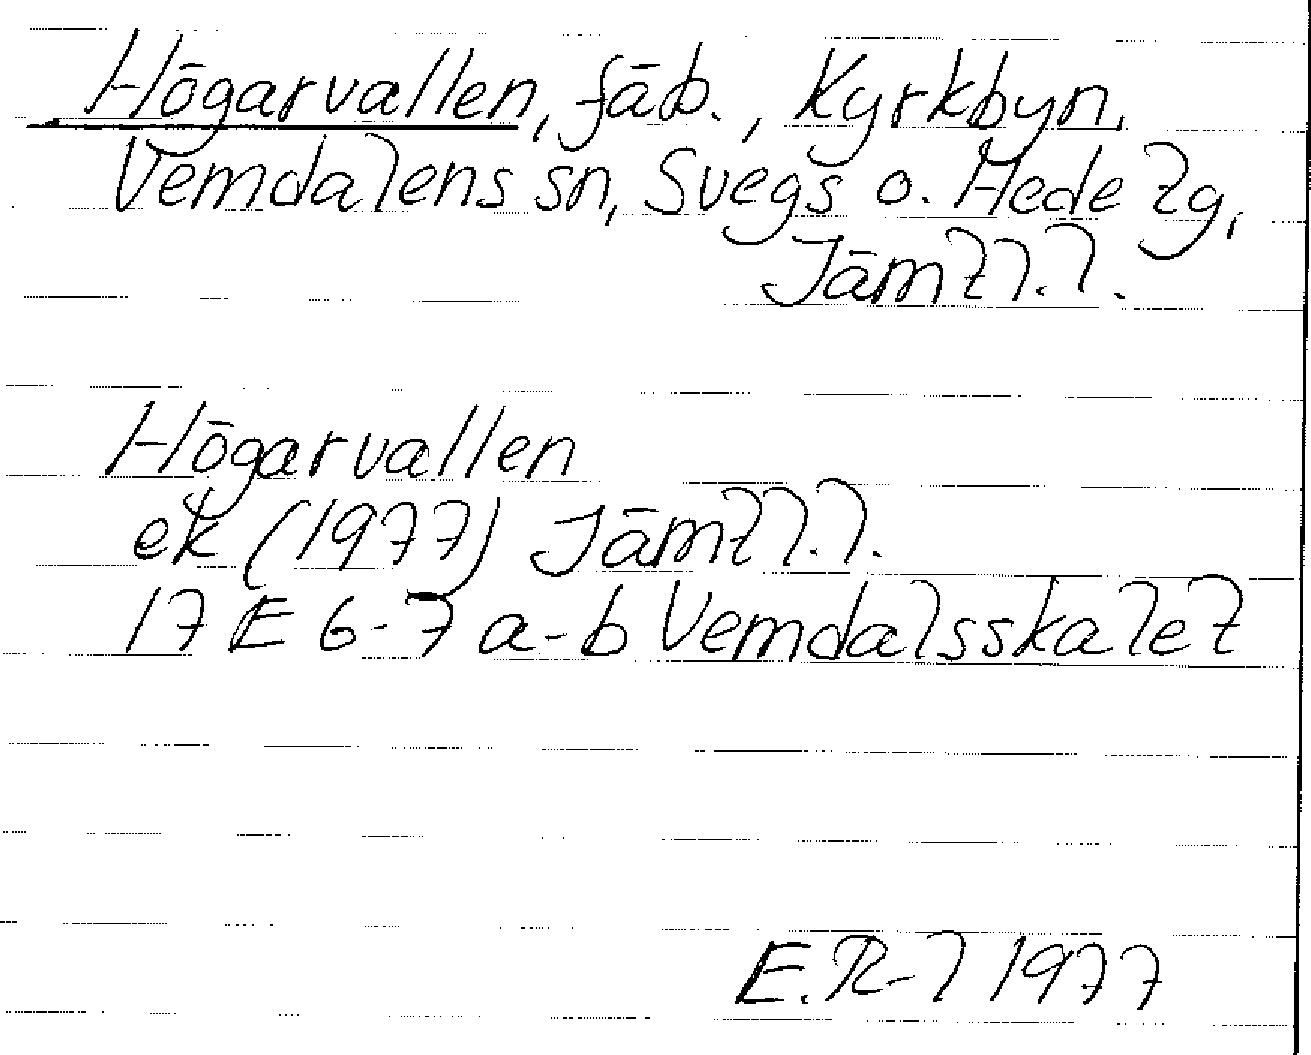 Högarvallen, fäb., Kyrkbyn,
Vemdalens sn, Svegs o. Hede tg,
Jämtl. l.
Högarvallen
ek (1977) Jämtl. l.
17 E 6-7 a-b Vemdalsskalet
E. R-l 1977